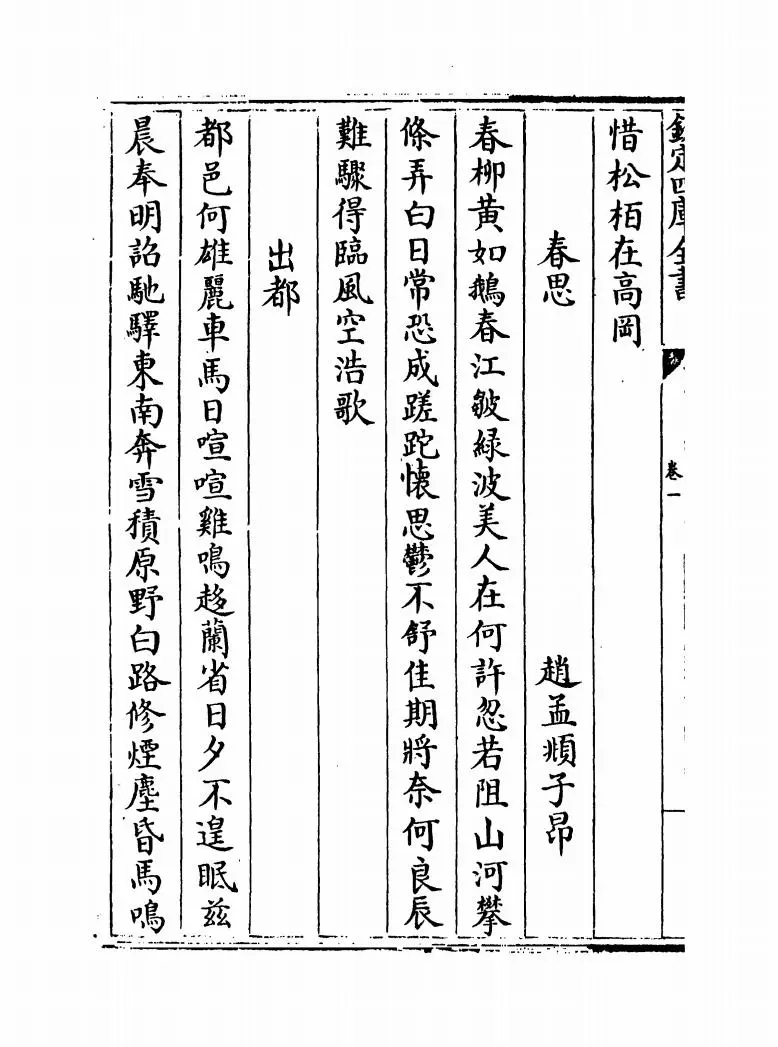 欽定四庫全書
卷一
惜松栢在高岡
春思
趙孟頫子昂
春柳黄如鵝春江皴緑波美人在何許忽若阻山河攀
條弄白日常恐成蹉跎懐思鬱不舒佳期將奈何良辰
難驟得臨風空浩歌
出都
都邑何雄麗車馬日喧喧雞鳴趍蘭省日夕不遑眠兹
晨奉明詔馳驛東南奔雪積原野白路修煙塵昏馬鳴